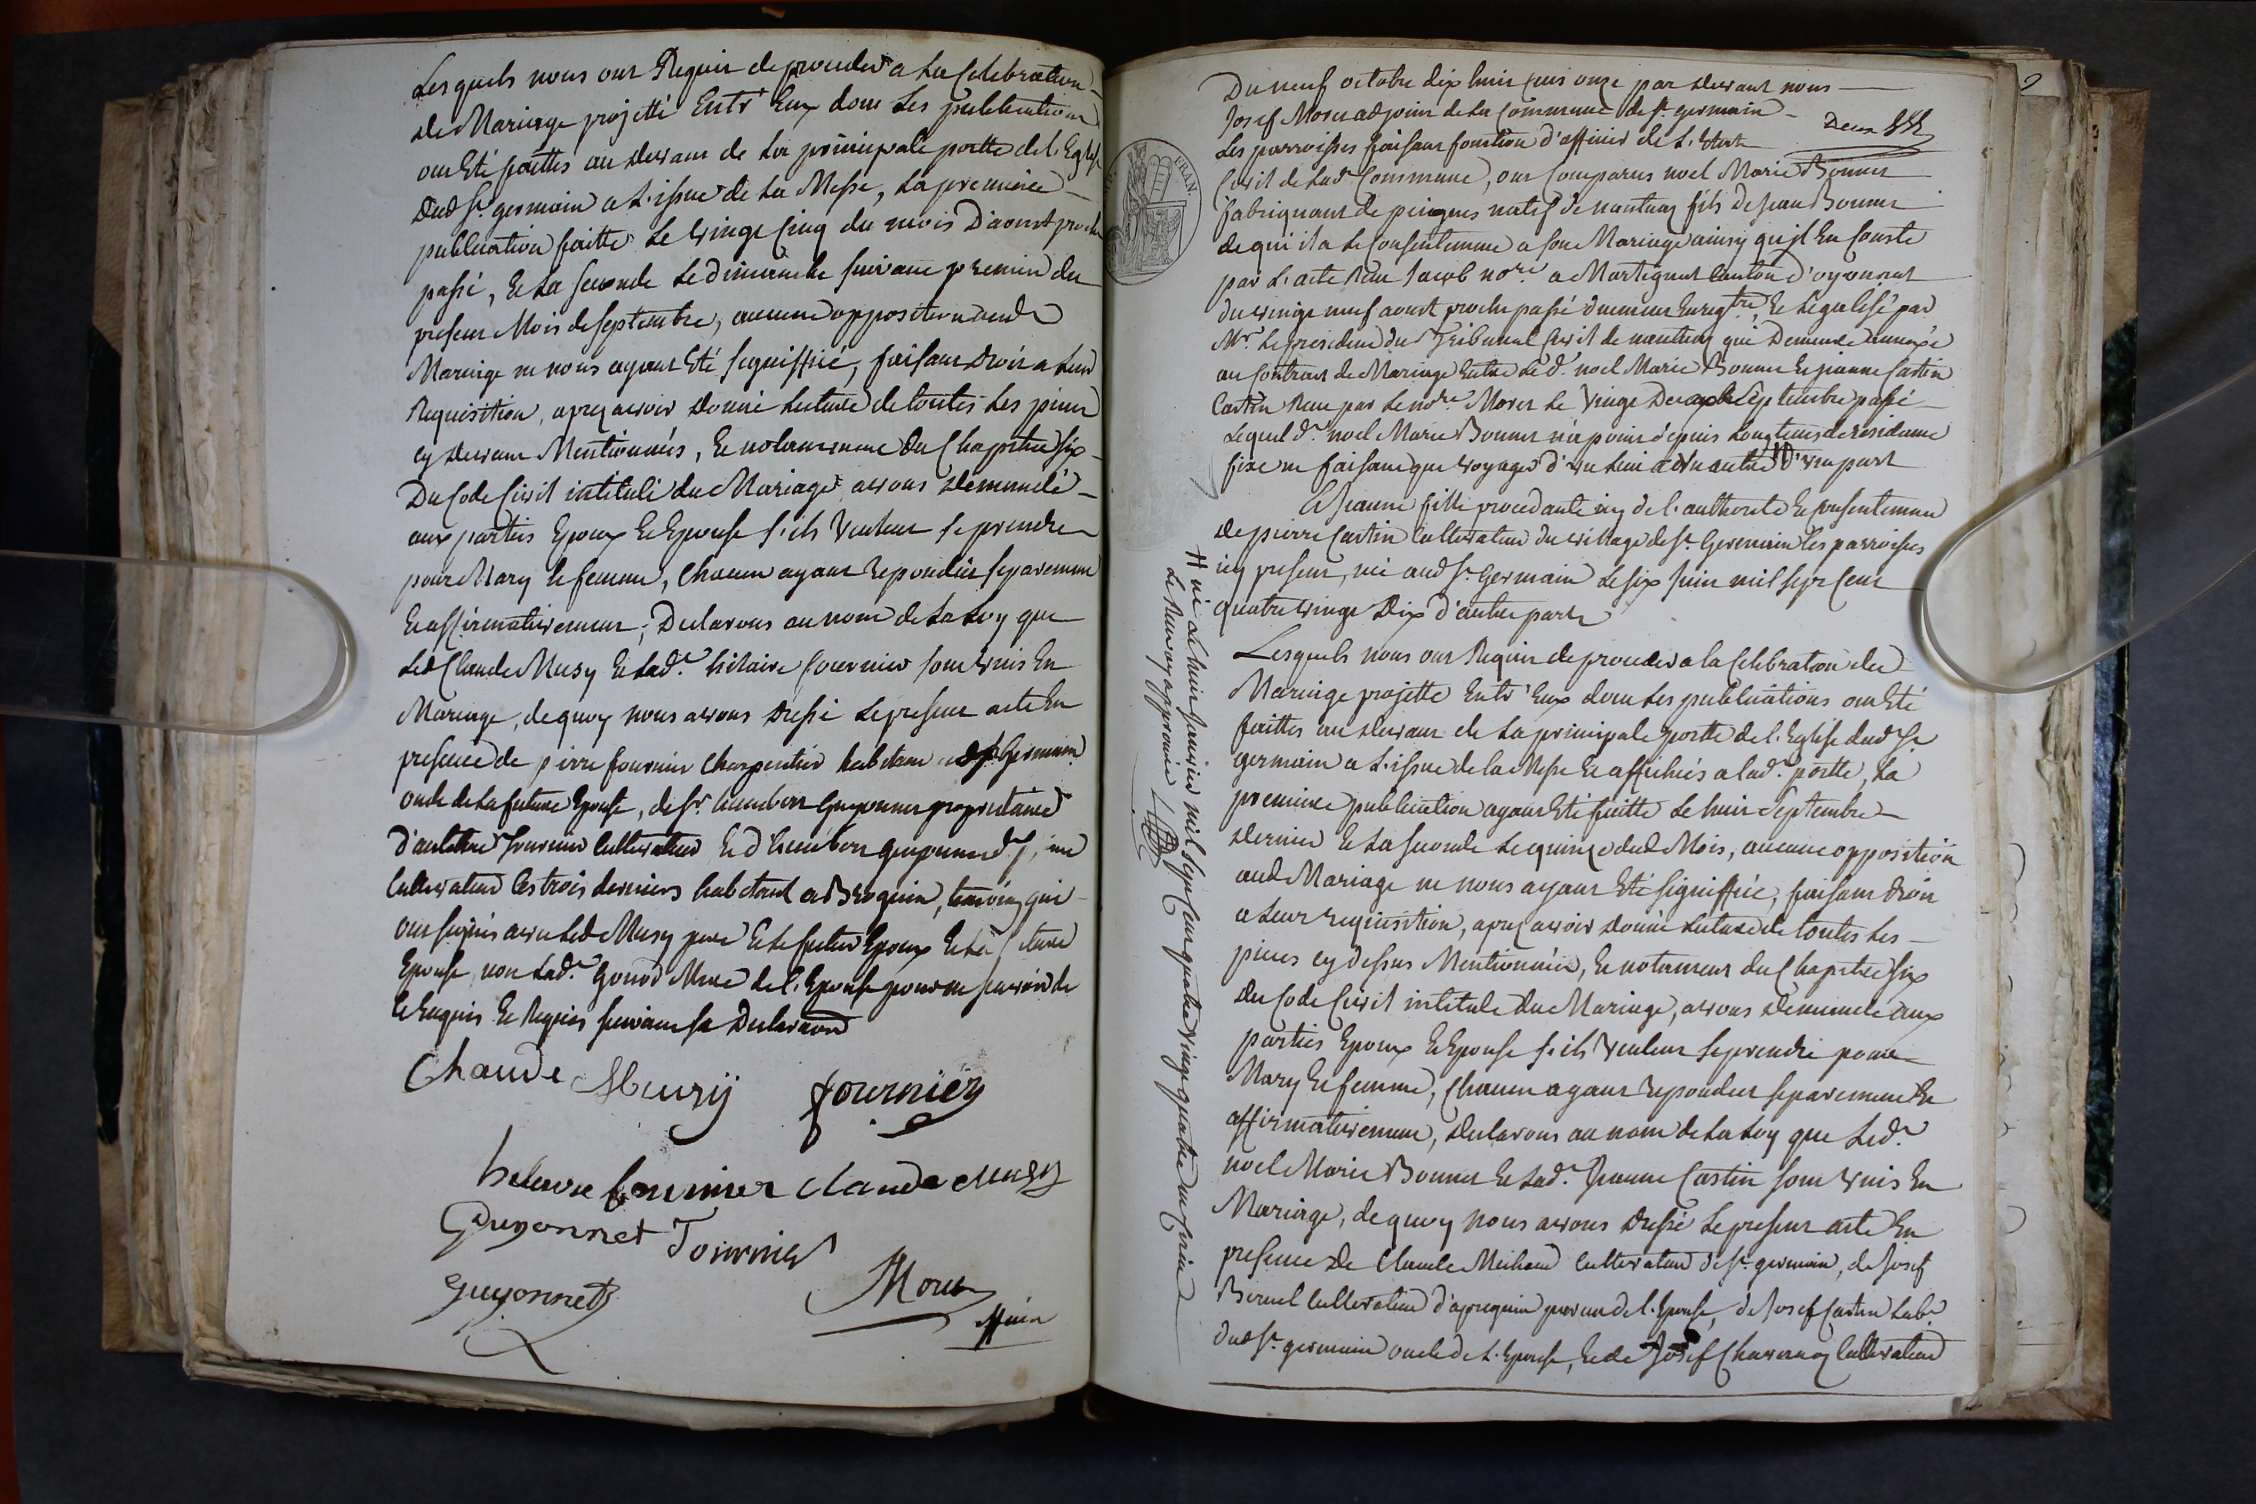 Lesquels nous ont Requis de proceder a La Celebration
de Mariage projetté Entr' Eux dont Les publications
ont Eté faittes au devant de La principale portte de L'Eglise
dud St. germain a L'issue de La Messe, La premiere
publication faitte Le vingt Cinq du mois D'aoust proche
passé, Et La seconde Le dimanche suivant premier du
present Mois de septembre, aucune opposition aud
Mariage ne nous ayant Eté signiffiée, faisant Droit a Leur
Requisition, apres avoir Donné Lecture de toutes Les pieces
cy devant Mentionnées, Et notamment du Chapitre six
Du Code Civil intitulé du Mariage avons demandé
aux parties Epoux Et Epouse s'ils Veulent se prendre
pour Mary Et femme, Chacun ayant repondus separement
Et affirmativement; Declarons au nom de La Loy que
Led Claude Musy Et Lad.e hilaire fournier sont unis En
Mariage, de quoy nous avons dressé Le present acte En
presence de pierre fournier Charpentier habitant St germain
oncle de La future Epouse, de Sr. humbert Guyonnet proprietaire
fournier Cultivateur Et d'humbert guyonnet
Cultivateur Les trois derniers habitant a Breguin, temoins qui
ont signés avec Led Musy pere Et Le futur Epoux Et La future
Epouse, non Lad.e Mere de L'Epouse pour ne savoir de
Ce Enquis Et Requis suivant sa Declaration
Claude Musÿ fournier
fournier claude musy
Guyonnet Fournier
guyonnet
Morer
2
Du neuf octobre dix huit Cent onze par devant nous
Josef Morer adjoint de La Commune de St. germain
Les parroisses faisant fonction d'officier de L'Etat
Deux
Civil de Lad.e Commune, ont Comparus noel Marie Bonnet
fabriquant de peignes natif de nantuay fils de Jean Bonnet
de qui il a Le Consentement a son Mariage ainsy qu'il En Conste
par L'acte Reçu Jacob nore. a Martignat Canton d'oyonnat
du vingt neuf aoust proche passé duement Enregtré, Et Legalisé par
Mr. Le president du Tribunal Civil de nantuay qui Demeure annexé
au Contrat de Mariage Entre Le d. noel Marie Bonnet Et jeanne Castin
Castin Reçu par Le nore. Morer Le Vingt Deux septembre passé
Lequel d. noel Marie Bonnet n'a point depuis Longtems de residance
fixe ne faisant que voyager d'un Lieu a un autre # D'une part
Et Jeanne fille procedante icy de L'authorité Et Consentement
de pierre Castin Cultivateur du village de St. Germain Les parroisses
icy present, née aud St. Germain Le six Juin mil sept Cent
quatre vingt Dix d'autre part
Lesquels nous ont Requis de proceder a la Celebration du
Mariage projetté Entr' Eux dont Les publications ont Eté
faittes au devant de La principale portte de L'Eglise dud St.
germain a L'issue de la Messe Et affichées a lad.e portte, La
premiere publication ayant Eté faitte Le huit septembre
dernier Et La seconde Le quinze dud Mois, aucune opposition
aud Mariage ne nous ayant Eté signiffiée, faisant Droit
a Leur requisition, apres avoir Donné Lecture de toutes Les
pieces cy dessus Mentionnées, Et notament du Chapitre six
du Code Civil intitulé du Mariage, avons demandé aux
parties Epoux Et Epouse s'ils Veulent se prendre pour
Mary Et femme, Chacun ayant repondus separement Et
affirmativement, declarons au nom de La Loy que Led.
noel Marie Bonnet Et Lad.e Jeanne Castin sont unis En
Mariage, de quoy nous avons dressé Le present acte En
presence de Claude Michaud Cultivateur de St. germain, de Josef
Cultivateur d'apreguin parent de L'Epouse, de Josef Castin Labr.
dud St. germain oncle de L'Epouse, Et de Josef Cultivateur
# né Le huit janvier mil sept Cent quatre vingt quatre
Le Renvoy approuvé